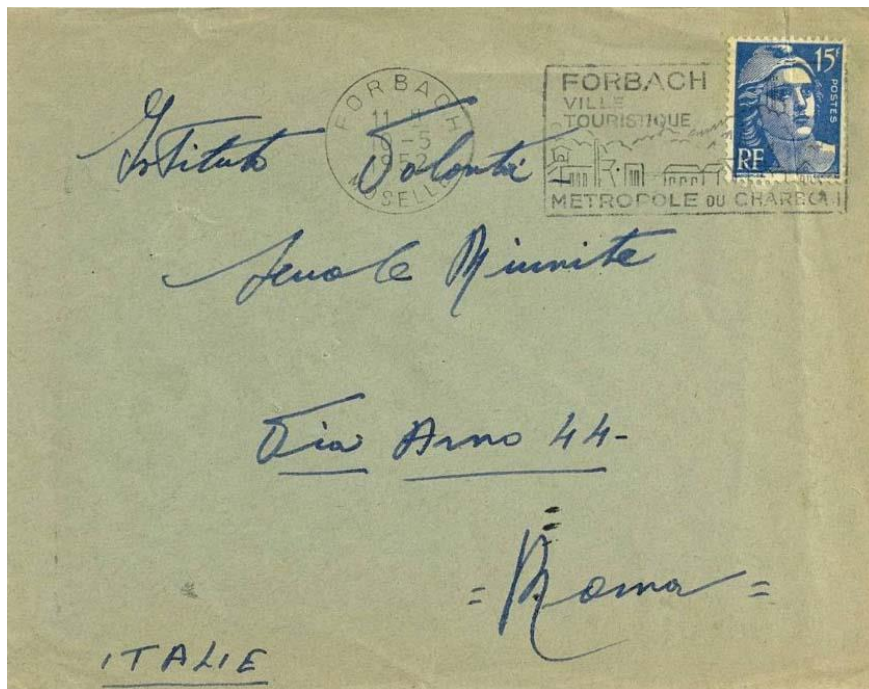 FORBACH
11 H
-5
1952
MOSELLE
FORBACH
VILLE
TOURISTIQUE
METROPOLE DU CHARBON
15F
POSTES
RF
Istituto Volontà
Scuole Riunite
Via Arno 44-
= Roma =
ITALIE